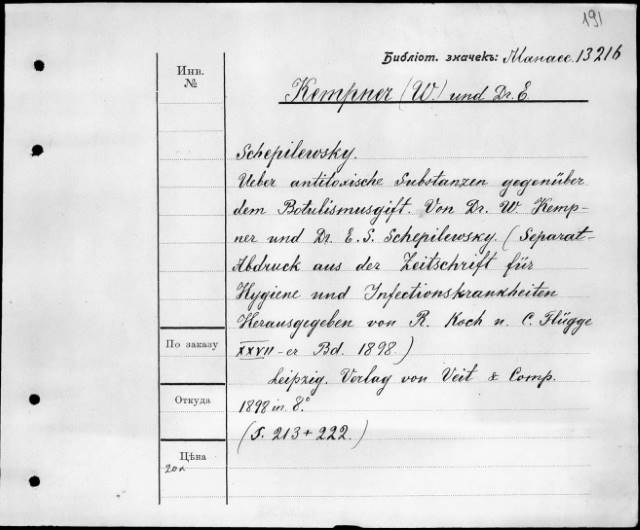 191
Библіот. значекъ: Манасс. 13216
Инв.
№
Kempner (W.) und Dr. E.
Schepilewsky.
Ueber antitoxische Substanzen gegenüber
dem Botulismusgift. Von Dr. W. Kemp-
ner und Dr. E. S. Schepilewsky. (Separat-
Abdruck aus der Zeitschrift für
Hygiene und Infectionskrankheiten
Herausgegeben von R. Koch u. C. Flügge
XXVII-er Bd. 1898.)
По заказу
Leipzig. Verlag von Veit & Comp.
Откуда
1898 in 8.°
(S. 213 + 222.)
Цѣна
20к